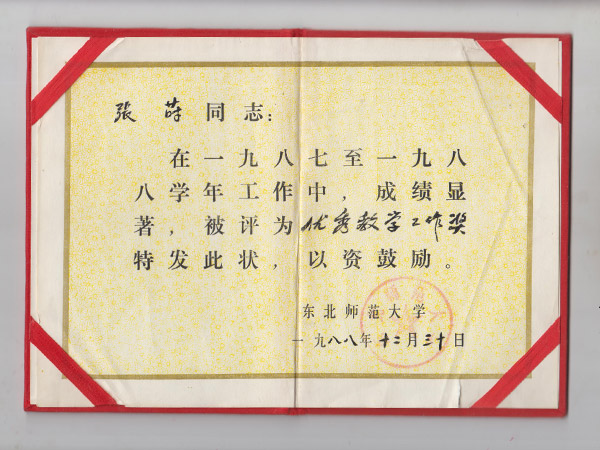 张 莳 同志：
在一九八七至一九八
八学年工作中，成绩显
著，被评为优秀教学工作奖
特发此状，以资鼓励。
东北师范大学
一九八八年十二月三十日